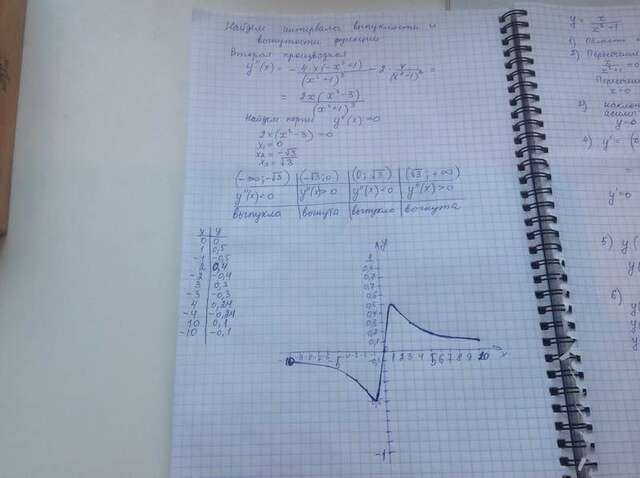 Найдем интервалы выпуклости и
вогнутости функции
Вторая производная
y''(x) = - 4·x(-x²+1)/(x²+1)³ - 2 x/(x²+1)² =
= 2x(x²-3)/(x²+1)³
Найдем корни y''(x)=0
2x(x²-3)=0
x₁=0
x₂=-√3
x₃=√3
(-∞;-√3) (-√3;0) (0;√3) (√3;+∞)
y''(x)<0 y''(x)>0 y''(x)<0 y''(x)>0
выпукла вогнута выпукла вогнута
x y
0 0
1 0,5
-1 -0,5
2 0,4
-2 -0,4
3 0,3
-3 -0,3
4 0,24
-4 -0,24
10 0,1
-10 -0,1
y
1
0,5
0,4
0,3
0,2
0,1
-10 1 2 3 4 5 6 7 8 9 10 x
-1
1) Область
2) Пересечени
=0
Пересечени
x=0
3)
y=0
4) y' =
y'=0
5) y(
y(
6)